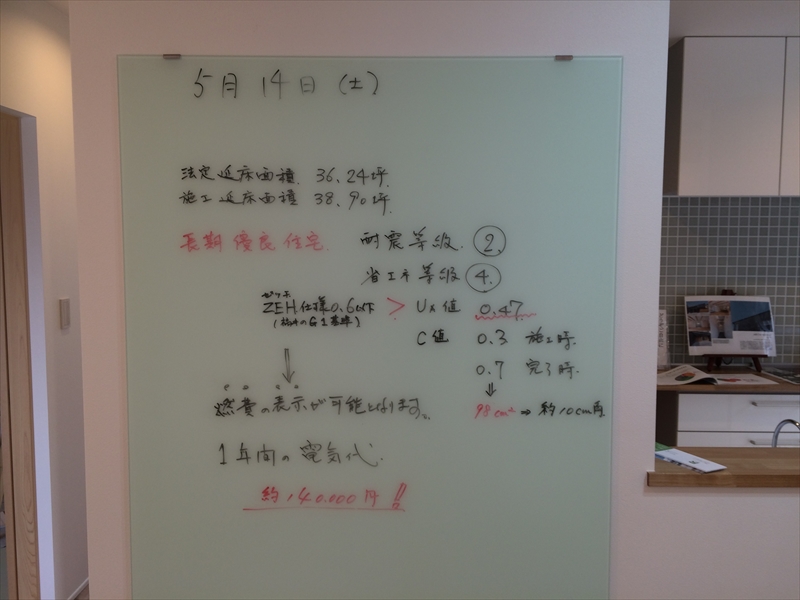 5月14日(土)
法定延床面積 36.24坪
施工延床面積 38.90坪
長期優良住宅 耐震等級 ②
省エネ等級 ④
ゼッチ
ZEH仕様0.6以下 > UA値 0.47
C値 0.3 施工時
0.7 完了時
⇓
⇓
98cm² ⇒ 約10cm角
燃費の表示が可能となります。
1年間の電気代
約140,000円!!